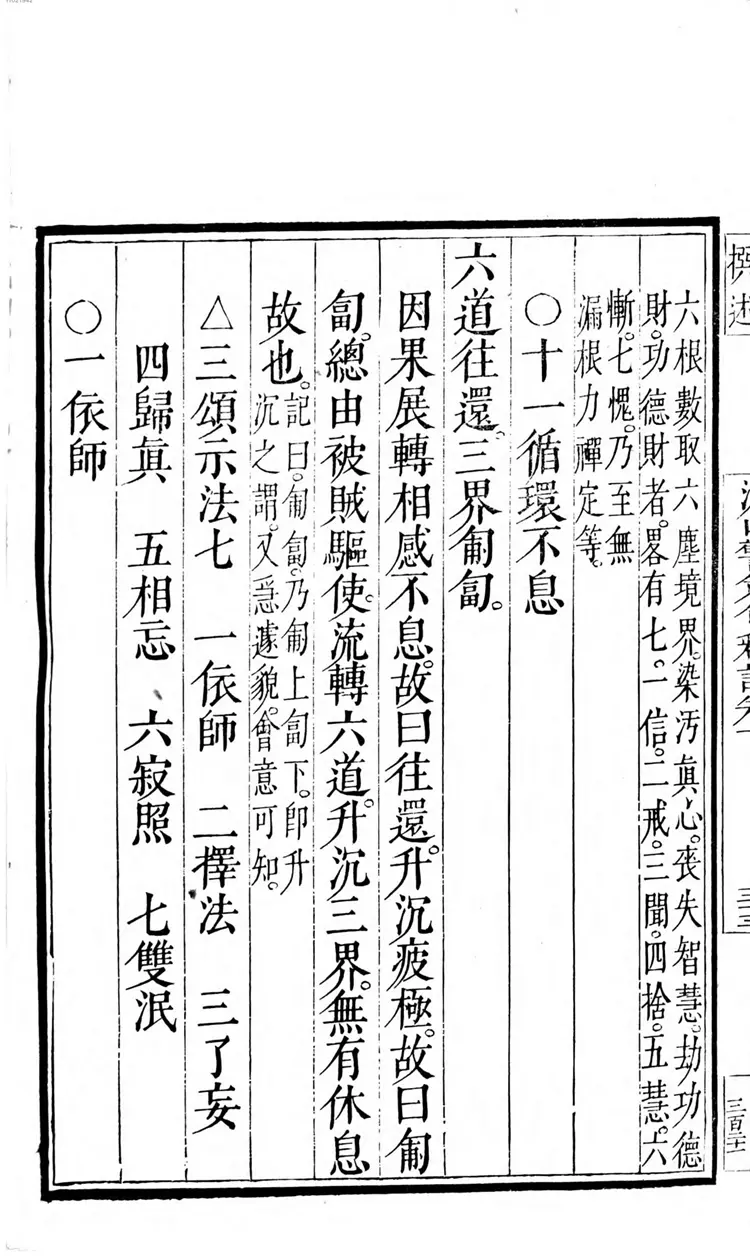 六根數取六塵境界。染汚眞心。喪失智慧。劫功德
財。功德財者。畧有七。一信。二戒。三聞。四捨。五慧。六
慚。七愧。乃至無
漏根力禪定等。
○十一循環不息
六道往還。三界匍匐。
因果展轉相感不息。故曰往還。升沉疲極。故曰匍
匐。總由被賊驅使。流轉六道。升沉三界。無有休息
故也。記曰。匍匐。乃匍上匐下。卽升
沉之謂。又急遽貌。會意可知。
△三頌示法七　一依師　二擇法　三了妄
四歸眞　五相忘　六寂照　七雙泯
○一依師
撰述
三百二十一